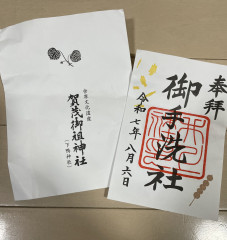 世界文化遺産
賀茂御祖神社
(下鴨神社)
奉拝
御手洗社
令和七年八月六日